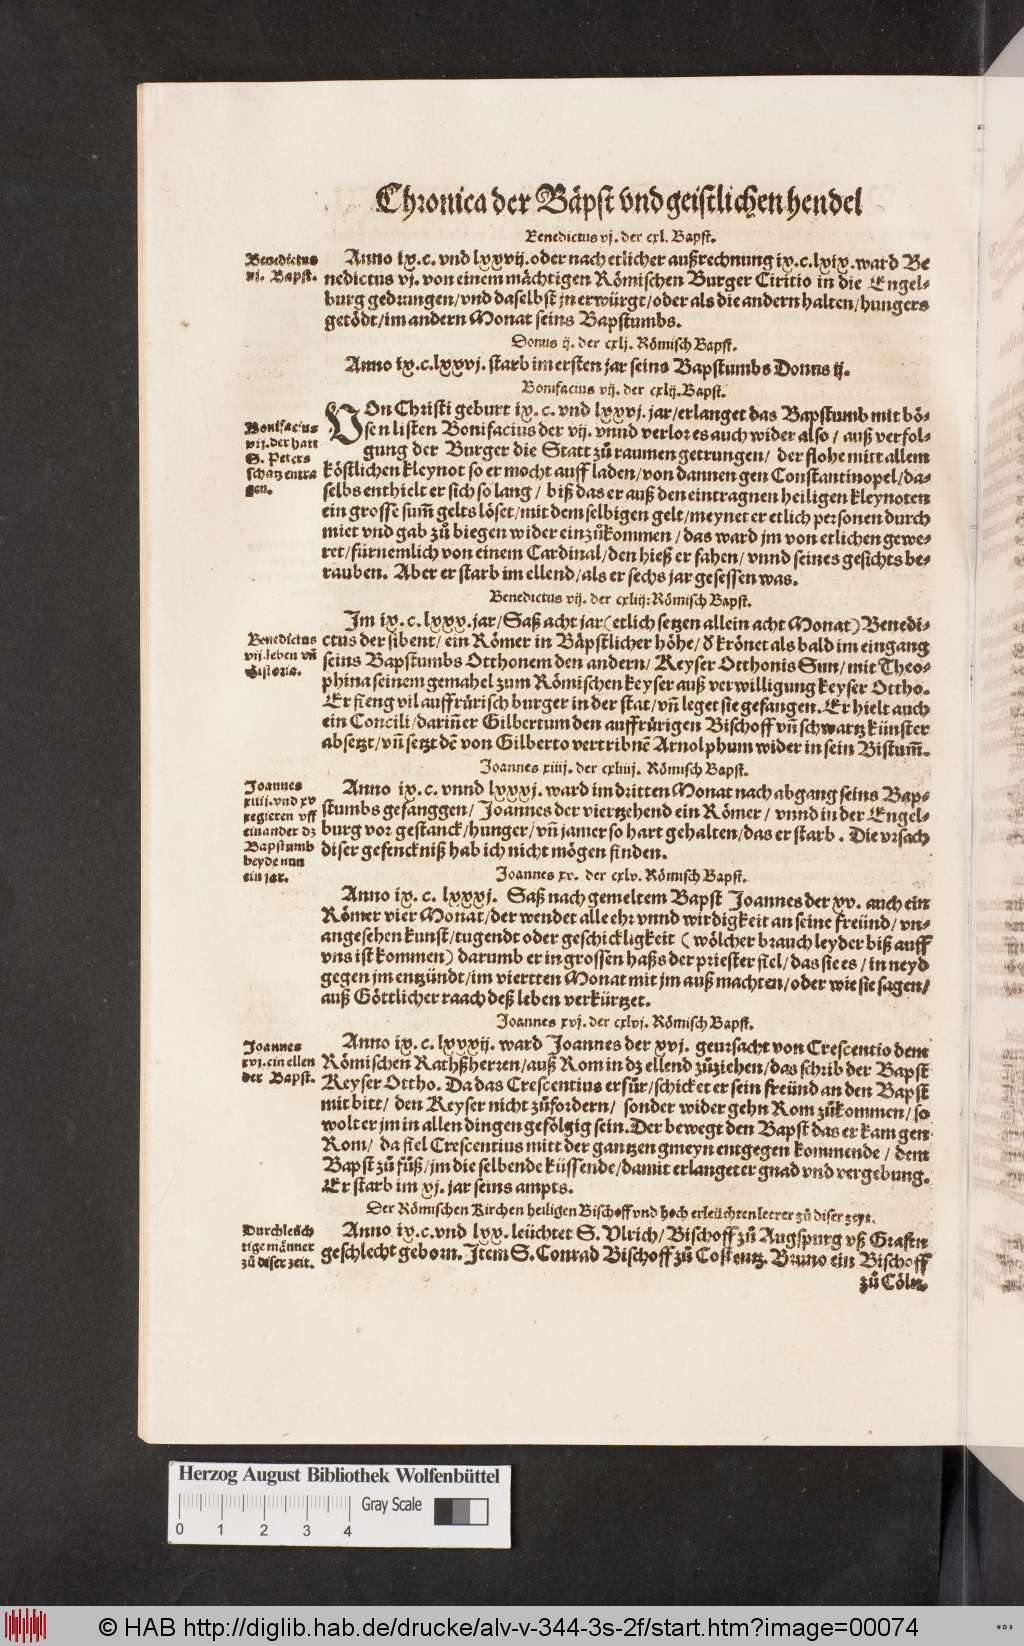 Chronica der Bäpst vnd geistlichen hendel
Benedictus vj. der cxl. Bapst.
Benedictus
vj. Bapst.
Anno ix.c. vnd lxxvij. oder nach etlicher außrechnung ix.c.lxix. ward Be
nedictus vj. von einem mächtigen Römischen Burger Ciritio in die Engel-
burg gedrungen/vnd daselbst jn erwürgt/oder als die andern halten/hungers
getödt/im andern Monat seins Bapstumbs.
Donus ij. der cxlj. Römisch Bapst.
Anno ix.c.lxxvj. starb im ersten jar seins Bapstumbs Donns ij.
Bonifacius vij. der cxlij. Bapst.
Bonifacius
vij. der hatt
S. Peters
schatz entra
gen.
VOn Christi geburt ix.c. vnd lxxvj. jar/erlanget das Bapstumb mit bö-
sen listen Bonifacius der vij. vnnd verlor es auch wider also/ auß verfol-
gung der Burger die Statt zů raumen getrungen/ der flohe mitt allem
köstlichen kleynot so er mocht auff laden/von dannen gen Constantinopel/da-
selbs enthielt er sich so lang/ biß das er auß den eintragnen heiligen kleynoten
ein grosse sum̃ gelts löset/mit dem selbigen gelt/meynet er etlich personen durch
miet vnd gab zů biegen wider einzůkommen/das ward jm von etlichen gewe-
ret/fürnemlich von einem Cardinal/den hieß er fahen/vnnd seines gesichts be-
rauben. Aber er starb im ellend/als er sechs jar gesessen was.
Benedictus vij. der cxliij: Römisch Bapst.
Benedictus
vij. leben vñ
Historie.
Im ix.c.lxxx. jar/Saß acht jar (etlich setzen allein acht Monat) Benedi-
ctus der sibent/ein Römer in Bäpstlicher höhe/ď krönet als bald im eingang
seins Bapstumbs Otthonem den andern/ Keyser Otthonis Sun/mit Theo-
phina seinem gemahel zum Römischen keyser auß verwilligung keyser Ottho.
Er fieng vil auffrůrisch burger in der stat/vñ leget sie gefangen. Er hielt auch
ein Concili/dariñ er Gilbertum den auffrůrigen Bischoff vñ schwartzkünster
absetzt/vñ setzt dẽ von Gilberto vertribnẽ Arnolphum wider in sein Bistum̃.
Joannes xiiij. der cxliiij. Römisch Bapst.
Joannes
xiiij. vnd xv
regieren vff
einander dz
Bapstumb
beyde nun
ein jar.
Anno ix.c. vnnd lxxxj. ward im dritten Monat nach abgang seins Bap-
stumbs gefanggen/ Joannes der viertzehend ein Römer/ vnnd in der Engel-
burg vor gestanck/hunger/vñ jamer so hart gehalten/das er starb. Die vrsach
diser gefenckniß hab ich nicht mögen finden.
Joannes xv. der cxlv. Römisch Bapst.
Anno ix.c. lxxxj. Saß nach gemeltem Bapst Joannes der xv. auch ein
Römer vier Monat/der wendet alle ehr vnnd wirdigkeit an seine freünd/vn-
angesehen kunst/tugendt oder geschickligkeit (wölcher brauch leyder biß auff
vns ist kommen) darumb er in grossen haßs der priester fiel/das sie es/in neyd
gegen jm entzündt/im viertten Monat mit jm auß machten/oder wie sie sagen/
auß Göttlicher raach deß leben verkürtzet.
Joannes xvj. der cxlvj. Römisch Bapst.
Joannes
xvj. ein ellen
der Bapst.
Anno ix.c.lxxxij. ward Joannes der xvj. geursacht von Crescentio dem
Römischen Rathßherren/auß Rom in dz ellend zůziehen/das schrib der Bapst
Keyser Ottho. Da das Crescentius erfůr/schicket er sein freünd an den Bapst
mit bitt/ den Keyser nicht zůfordern/ sonder wider gehn Rom zůkommen/so
wolt er jm in allen dingen gefölgig sein. Der bewegt den Bapst das er kam gen
Rom/ da fiel Crescentius mitt der gantzen gmeyn entgegen kommende/ dem
Bapst zů fůß/jm die selbende küssende/damit erlanget er gnad vnd vergebung.
Er starb im xj. jar seins ampts.
Der Römischen Kirchen heiligen Bischoff vnd hoch erleüchten leerer zů diser zeyt.
Durchleüch
tige männer
zů diser zeit.
Anno ix.c. vnd lxx. leüchtet S. Vlrich/Bischoff zů Augspurg vß Grafen
geschlecht geborn. Item S. Conrad Bischoff zů Costentz. Bruno ein Bischoff
zů Cöln.
Herzog August Bibliothek Wolfenbüttel
Gray Scale
0 1 2 3 4
© HAB http://diglib.hab.de/drucke/alv-v-344-3s-2f/start.htm?image=00074